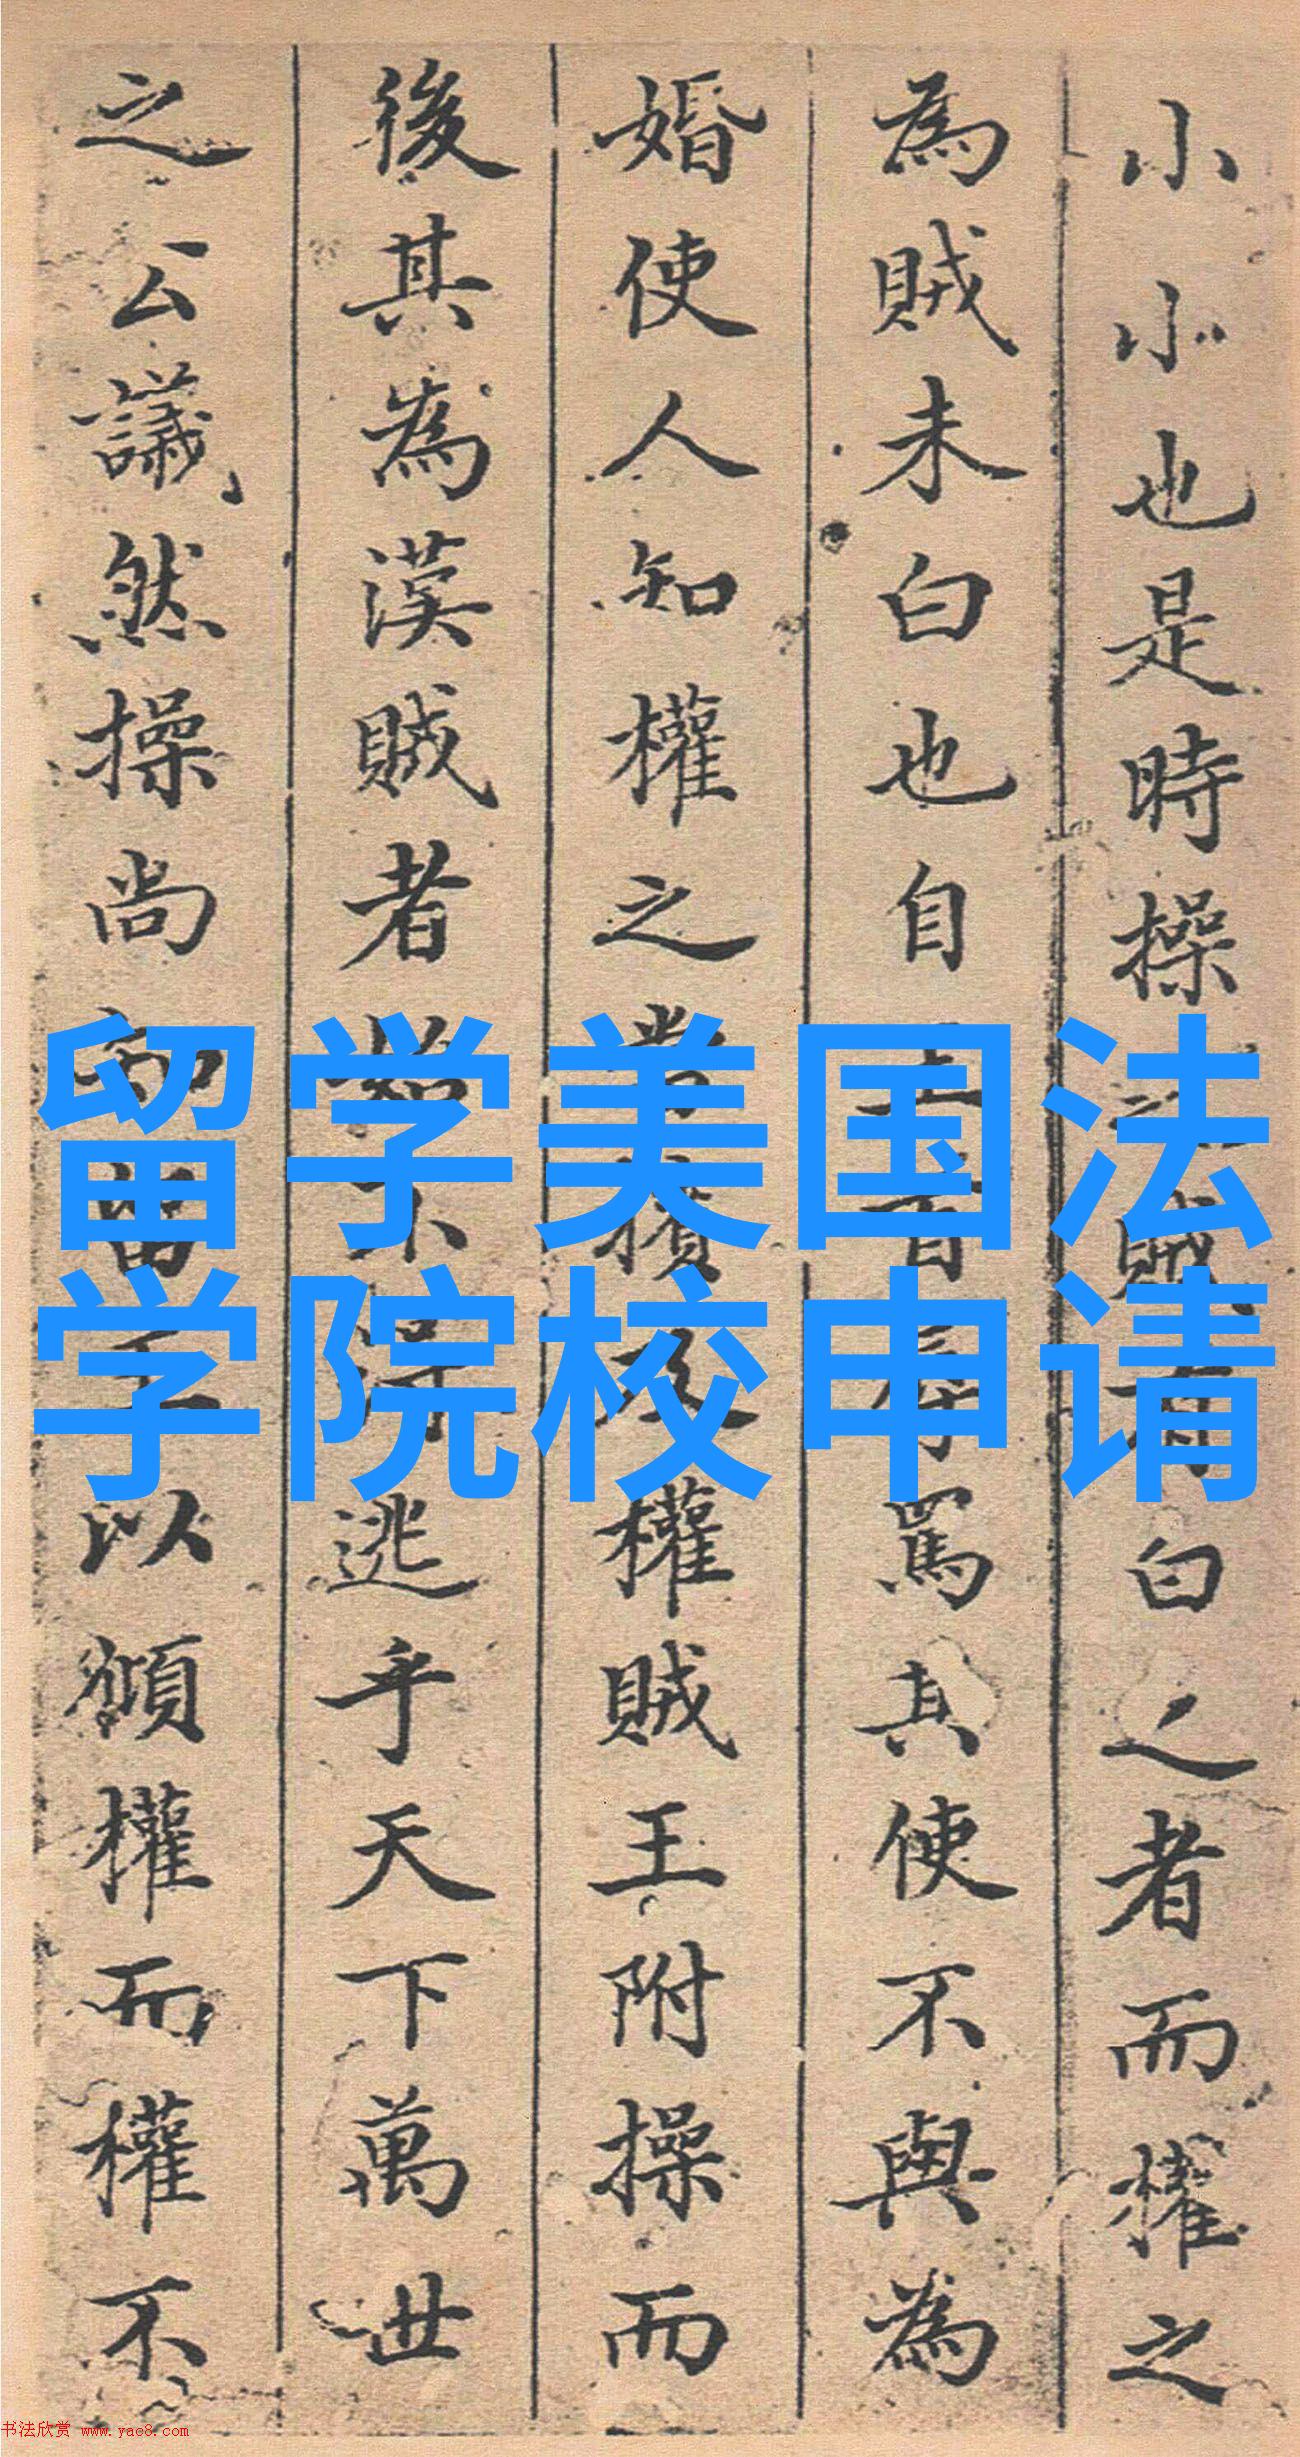 小小也是時操賊白之者而權之
為賊未白也自罵其使不與為
婚使人知權之權賊王附操而
後其為漢賊者逃乎天下萬世
之公議然操尚以權而權不
留学美国法
学院校申请
书法欣赏 www.yac8.com